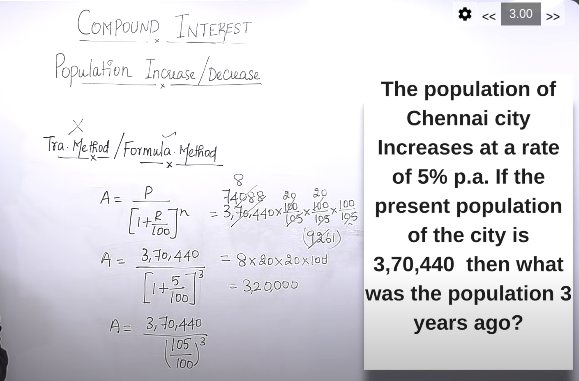 COMPOUND INTEREST
Population Increase/Decrease
Tra. Method / Formula Method
A = P / [1+R/100]^n
A = 3,70,440 / [1+5/100]^3
A = 3,70,440 / (105/100)^3
8
74088 20 20
= 3,70,440 x 100/105 x 100/105 x 100/105
(9261)
= 8x20x20x100
= 3,20,000
<< 3.00 >>
The population of
Chennai city
Increases at a rate
of 5% p.a. If the
present population
of the city is
3,70,440 then what
was the population 3
years ago?